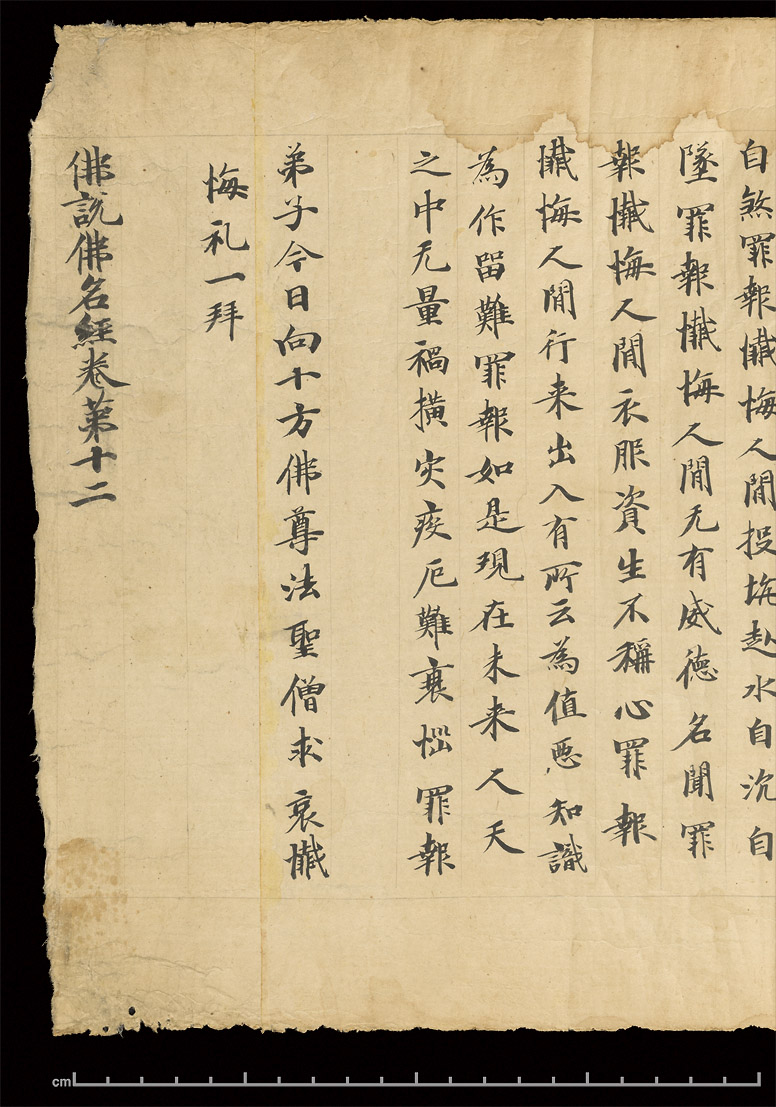 自煞罪報懺悔人間投坑赴水自沉自
墜罪報懺悔人間无有威德名聞罪
報懺悔人間衣服資生不稱心罪報
懺悔人間行来出入有所云為值惡知識
為作留難罪報如是現在未来人天
之中无量禍橫灾疫厄難衰惱罪報
弟子今日向十方佛尊法聖僧求哀懺
悔礼一拜
佛說佛名經卷第十二
cm